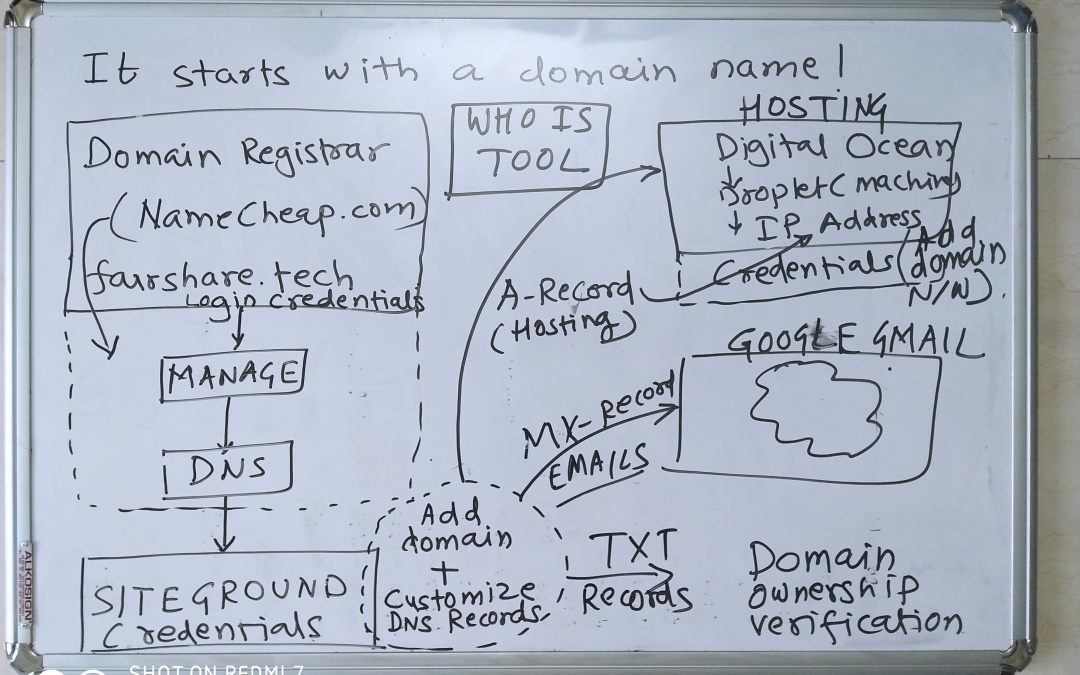 It starts with a domain name!
Domain Registrar
(NameCheap.com)
fairshare.tech
Login credentials
MANAGE
DNS
SITEGROUND
Credentials
WHO IS
TOOL
HOSTING
Digital Ocean
Droplet (machine)
IP Address
Credentials (Add
domain
N/W).
A-Record
(Hosting)
GOOGLE GMAIL
MX-Record
EMAILS
Add
domain
+
Customize
DNS Records
TXT
Records
Domain
ownership
verification
ALKOSIGN
SHOT ON REDMI 7